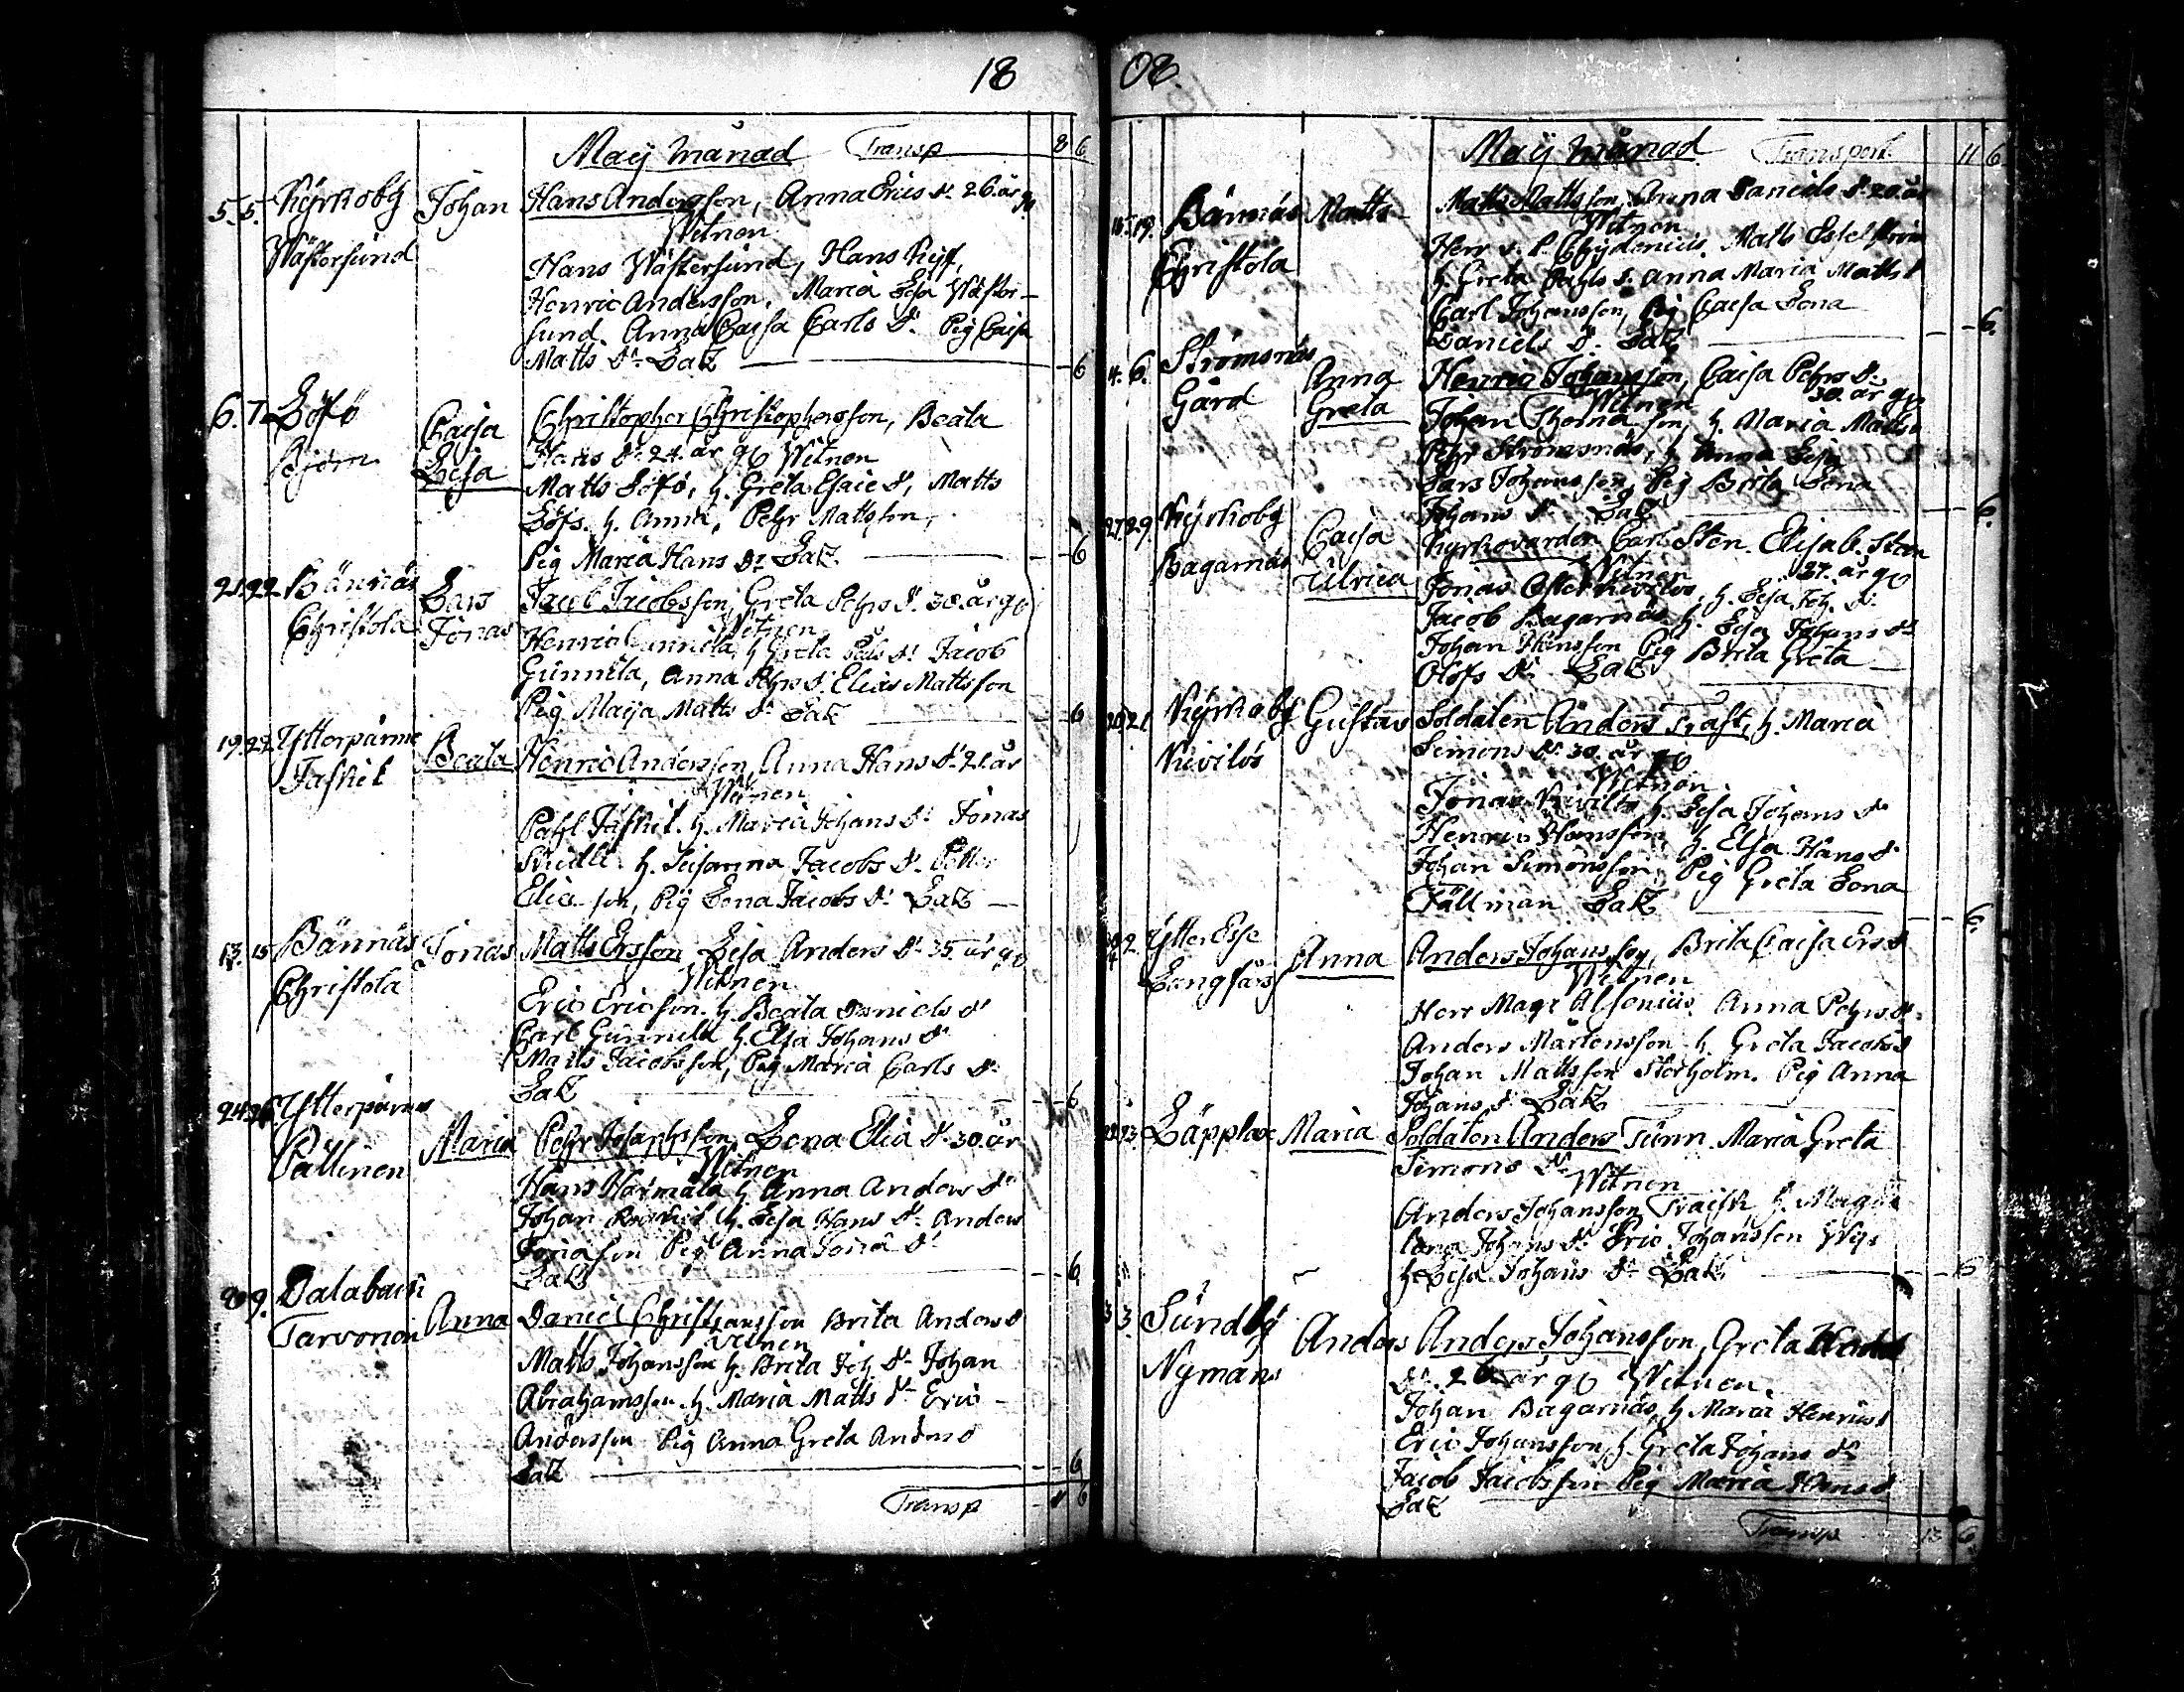 18
Maÿ Månad Transp 8 6
5. 5. Kÿrkobÿ Johan Hans Andersson, Anna Erics dr. 26. år g
Wästersund Witnen
Hans Wästersund, Hans
Henric Andersson, Maria Lisa Wäster-
sund Anna Caisa Carls dr. Pig Caisa
Matts dr. Lak 6
6. 7. Löfö Caisa Christopher Christophersson, Beata
Björn Lisa Hans dr. 24. år g Witnen
Matts Löfö, h. Greta Esaie d, Matts
Löfs. h. Anna, Pehr Mattsson,
Pig Maria Hans dr. Lak 6
21. 22. Bännäs Lars Jacob Jacobsson, Greta Pehrs d. 30. år g
Christola Jonas Witnen
Henric Gunnila, h Greta Påls dr. Jacob
Gunnila, Anna Pehrs d. Elias Mattsson
Pig Maija Matts dr. Lak 6
19. 22. Ytterpurmo Beata Henric Andersson, Anna Hans d. 21. år
Witnen
Påhl h. Maria Johans dr. Jonas
h. Susanna Jacobs dr. Petter
Elia son, Pig Lena Jacobs d. Lak
13. 15 Bännäs Jonas Matts Ersson Lisa Anders dr. 35. år g
Christola Witnen
Eric Ericsson. h. Beata Daniels d
Carl Gunnila h. Elsa Johans d
Matts Jacobsson, Pig Maria Carls dr.
Lak 6
24. Ytterpurmo Maria Pehr Josephsson, Lena Elia d. 30. år
Pållinen Witnen
Hans Harmala h Anna Anders dr
Johan h. Lisa Hans dr. Anders
Jonasson Pig Anna Jona dr
Lak 6
9. Dalabacka Anna Daniel Christiansson Brita Anders d
Tarvonen Witnen
Matts Johansson h. Brita Joh dr. Johan
Abrahamsson. h. Maria Matts dr. Eric
Andersson Pig Anna Greta Anders d
Lak 6
Transp 6
08.
Maÿ Månad Transport 11 6
19. Bännäs Matts Matts Mattsson, Anna Daniels d. 20. år
Christola Witnen
Herr Chydenius Matts Estelström
h. Greta Påhls d. Anna Maria Matts d
Carl Johansson, Pig Caisa Lena
Daniels dr. Lak 6.
4. 6. Strömsnäs Anna Henric Johansson, Caisa Pehrs dr.
Gård Greta Witnen 30. år g
Johan Thomasson, h. Maria Matts d
Pehr Strömsnäs, h Anna Lisa
Lars Johansson, Pig Brita Lena
Johans dr. Lak 6.
27. 29. Kÿrkobÿ Caisa Kyrkovärden Carl Sten. Elisab. Sten
Bagarnäs Ulrica Witnen 27. år g
Jonas h. Lisa Joh. dr.
Jacob Bagarnäs h. Lisa Johans dr
Johan Hansson Pig Brita Greta
Olofs dr. Lak
21. Kÿrkobÿ Gustav Soldaten Anders Traft, h. Maria
Kivilös Simons dr. 30. år g
Witnen
Jonas Kivilös h. Lisa Johans dr
Henric Hansson, h. Elsa Hans d
Johan Simonsson, Pig Greta Lena
Fällman Lak 6.
2. Ytter Esse Anna Anders Johansson, Brita Caisa Ers d
Långfors Witnen
Herr Mag Alfenius Anna Pehrs dr.
Anders Mårtensson h. Greta Jacobs d
Johan Mattsson Storholm. Pig Anna
Johans d. Lak
23. Läpplax Maria Soldaten Anders Tunn Maria Greta
Simons dr.
Witnen
Anders Johansson Träsk h. Magda
lena Johans dr. Eric Johansson
h Lisa Johans dr. Lak
3 3. Sundbÿ Anders Anders Johansson, Greta
Nÿmans dr. 26 år g Witnen.
Johan Bagarnäs, h Maria Henrics d
Eric Johansson, h. Greta Johans dr
Jacob Jacobsson Pig Maria Hans d
Lak
Transp 13 6